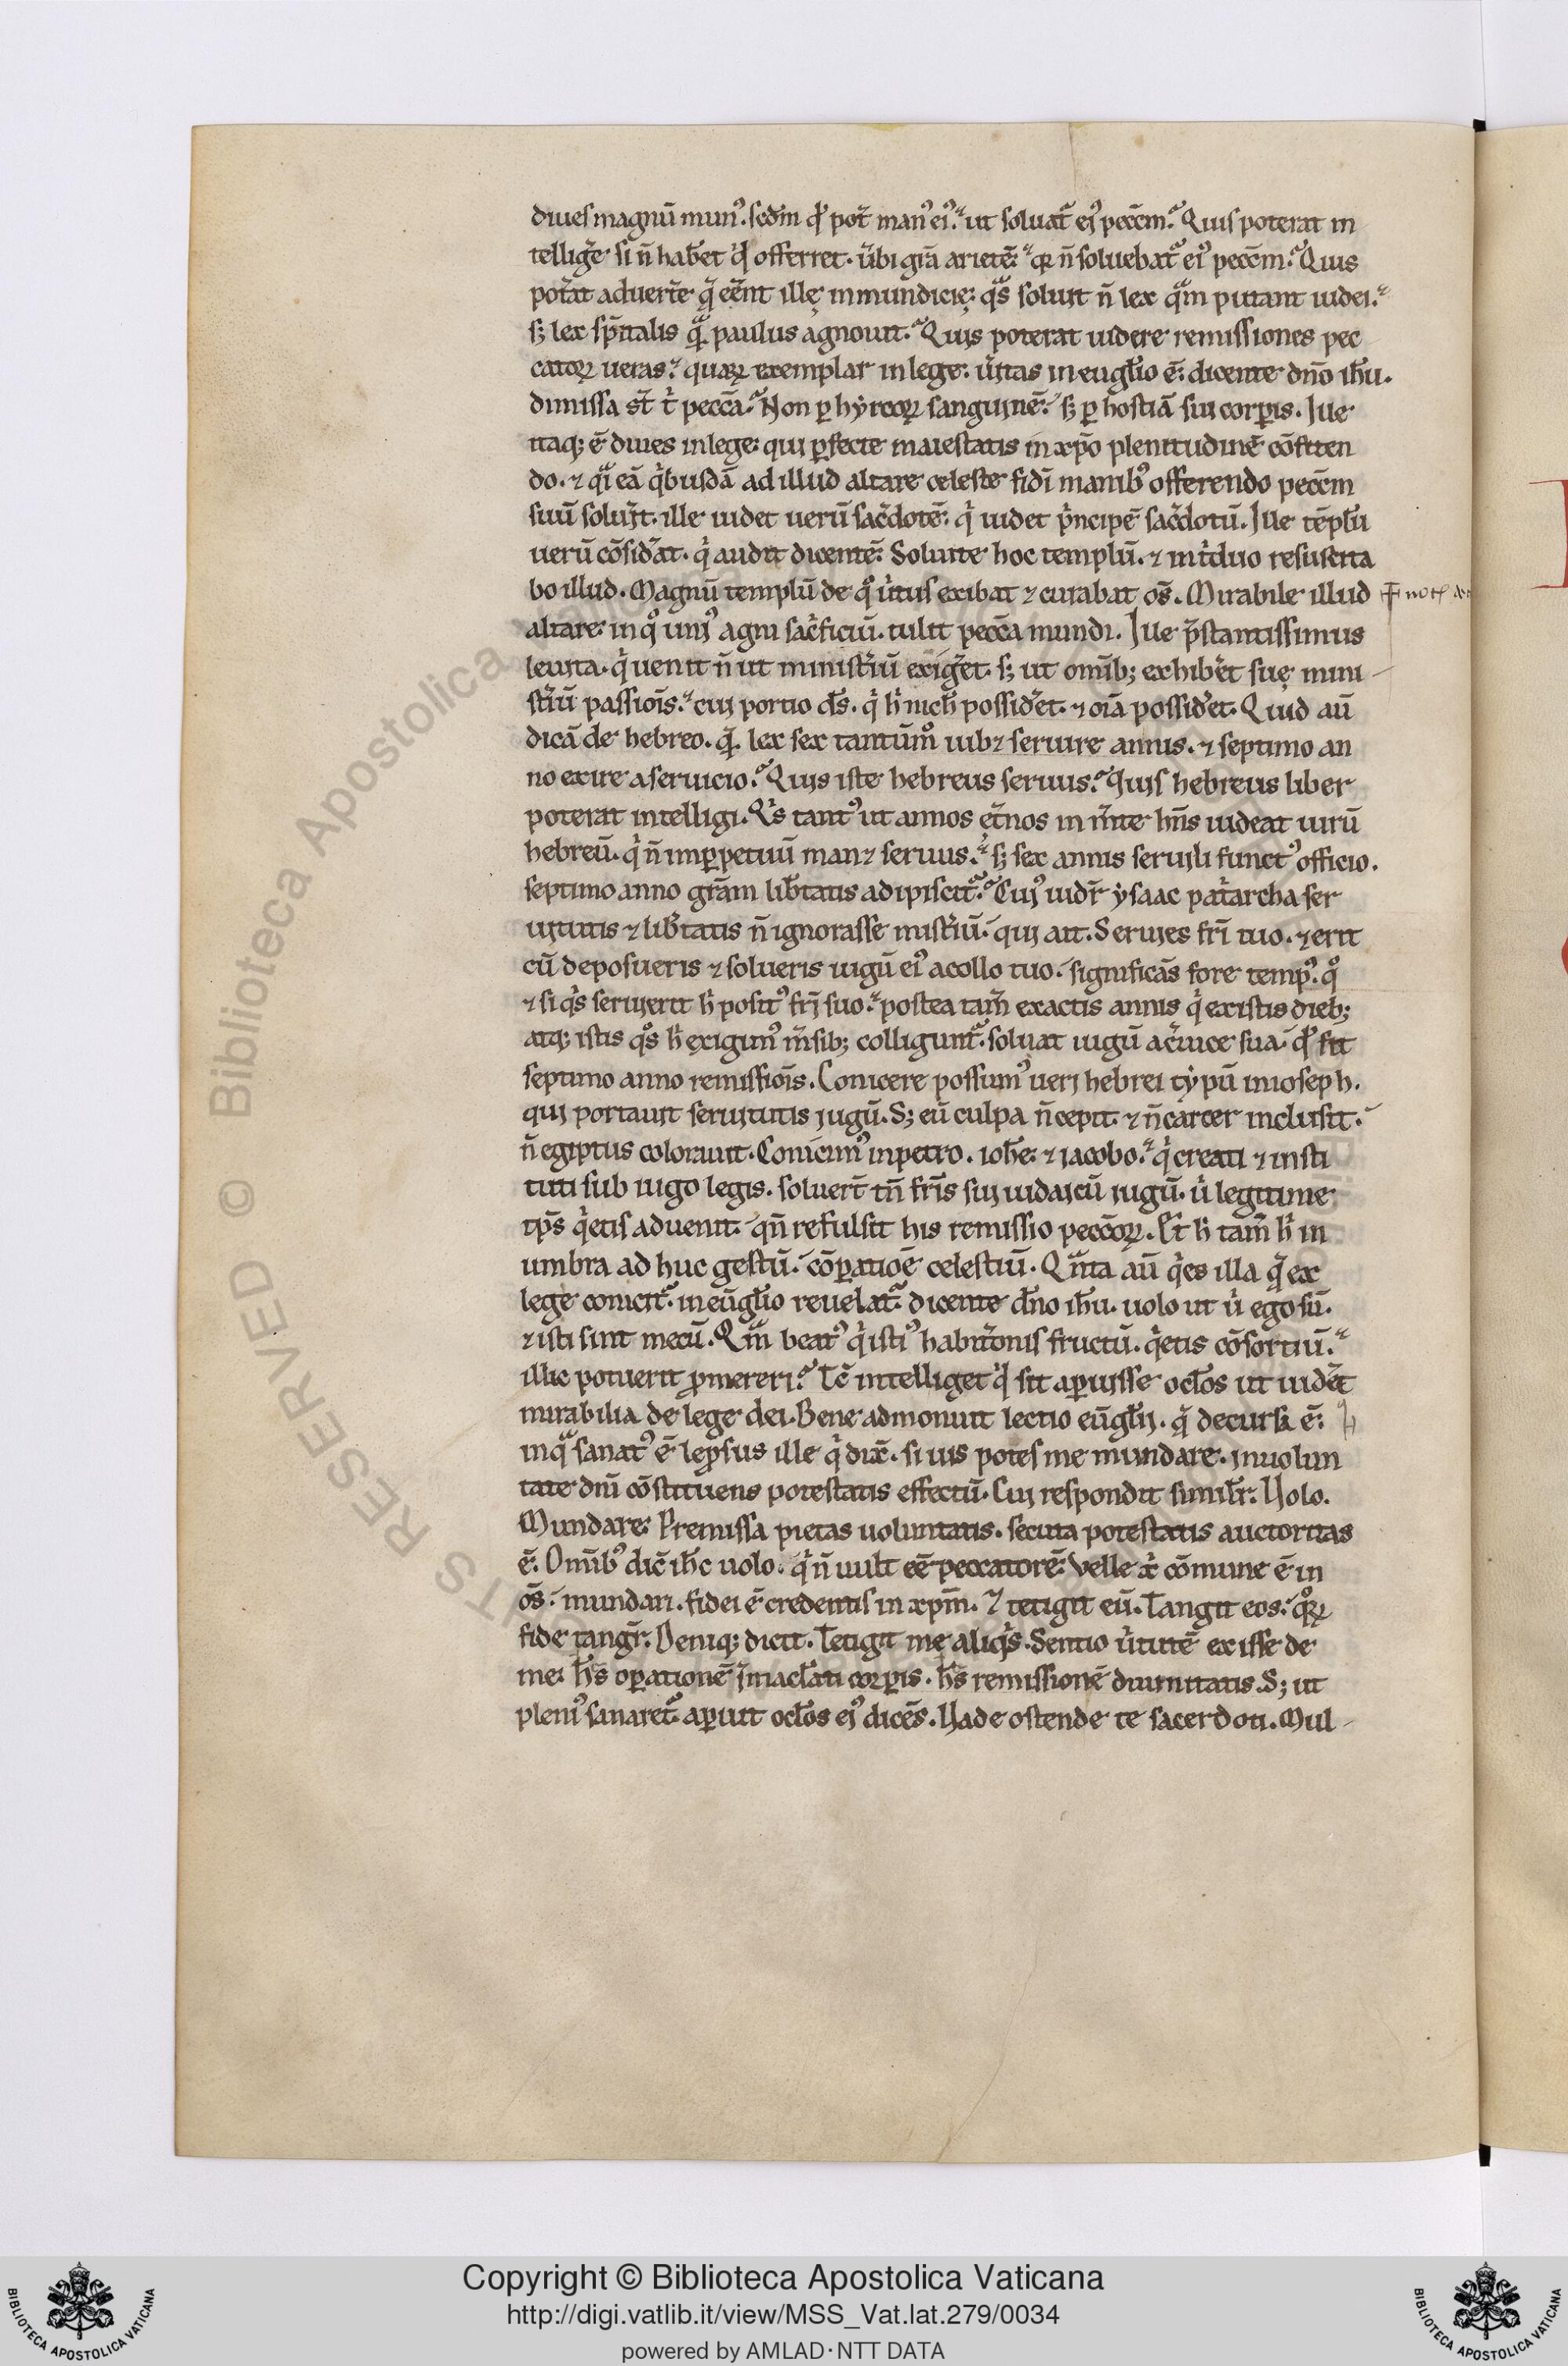 diues magnū munꝰ. sed̄m qd̓ pot̄ manꝰ eiꝰ. ut soluat᷑ eiꝰ pecc̄m. Quis poterat in
tellig̓e si n̄ hab̓et qd̓ offerret. ūbi gr̄a arietē. qꝛ n̄ soluebat᷑ eiꝰ pecc̄m. Quis
pot̓at aduert̓e q̄ eēnt illę inmundicię. qͣs soluit n̄ lex qͣm putant iudei.
sꝫ lex sp̄italis qͣ paulus agnouit. Quis poterat uidere remissiones pec
catoꝝ ueras. ⁊ quaꝝ exemplar in lege. ūitas in eugl̄io ē. dicente dn̄o ih̄u.
dimissa st̄ t̓ pecc̄a. Non ꝑ hyrcoꝝ sanguinē. sꝫ ꝑ hostiā sui corꝑis. Ille
itaqꝫ ē diues in lege. qui ꝑfecte maiestatis in xp̄o plenitudinē cōfiten
do. ⁊ qͣi eā qͥbusdā ad illud altare celeste fidī manibꝰ offerendo pecc̄m
suū soluit. ille uidet uerū sac̓dotē. qͥ uidet pͥncipē sac̓dotū. Ille tēplū
uerū cōsid̓at. qͥ audit dicentē. Soluite hoc templū. ⁊ in tͥduo resuscita
bo illud. Magnū templū de qͦ ūtus exibat ⁊ curabat os̄. Mirabile illud
altare. in qͦ uniꝰ agni sac̓ficiū. tulit pecc̄a mundi. Ille p̄stantissimus
leuita. qͥ uenit n̄ ut minist̓iū exig̓et. sꝫ ut omībꝫ exhib̓et suę mini-
st̓iū passiōis. cui portio d̄s. qͥ h̓ nich̄ possid̓et. ⁊ oīa possid̓et. Quid aū
dicā de hebreo. qͣ lex sex tantūmͦ iubꝫ seruire annis. ⁊ septimo an
no exire a seruicio. Quis iste hebreus seruus. quis hebreus liber
poterat intelligi. Qͥs tantꝰ ut annos et̓nos in m̄te hn̄s uideat uirū
hebreū. qͥ n̄ inꝑpetuū manꝫ seruus. sꝫ sex annis seruili functꝰ officio.
septimo anno gr̄am lib̓tatis adipiscit᷑. Cuiꝰ uidr̄ ysaac pat̓archa ser
uitutis ⁊ lib̓tatis n̄ ignorasse mist̓iū. qui ait. Seruies frī tuo. ⁊ erit
cū deposueris ⁊ solueris iugū eiꝰ a collo tuo. significās fore tempꝰ. qͦ
⁊ si qͥs seruierit h̓ positꝰ frī suo. postea tam̄ exactis annis qͥ ex istis diebꝫ
atqꝫ istis qͦs h̓ exigimꝰ m̄sibꝫ colligunt᷑. soluat iugū a c̓uice sua. qd̓ fit
septimo anno remissiōis. Conicere possumꝰ ueri hebrei typū in ioseph.
qui portauit seruitutis iugū. Sꝫ eū culpa n̄ cepit. ⁊ n̄ carcer inclusit.
n̄ egiptus colorauit. Conicimꝰ in petro. ioh̄e. ⁊ iacobo. qͥ creati ⁊ insti
tuti sub iugo legis. soluer̄t tn̄ fr̄is sui iudaicū iugū. ū legitime
tp̄s qͥetis aduenit. qn̄ refulsit his remissio pecc̄oꝝ. Et h̓ tam̄ h̓ in
umbra ad huc gestū. cōꝑatioē celestiū. Qͣnta aū qͥes illa q̄ ex
lege conicit᷑. in eugl̄io reuelat᷑. dicente dn̄o ih̄u. uolo ut ū ego sū.
⁊ isti sint mecū. Qͣm beatꝰ qͥ istiꝰ habitōnis fructū. qͥetis cōsortiū.
illic potuerit ꝓmereri. Tc̄ intelliget qd̓ sit aꝑuisse ocl̄os ut uid̓et
mirabilia de lege dei. Bene admonuit lectio eugl̄ii. q̄ decursa ē.
in qͣ sanatꝰ ē leꝓsus ille qͥ dix̄. si uis potes me mundare. in uolun
tate dn̄i cōstituens potestatis effectū. Cui respondit simil̄r. Uolo.
Mundare. Premissa pietas uoluntatis. secuta potestatis auctoritas
ē. Omībꝰ dic̄ ih̄c uolo. qͥ n̄ uult eē peccatorē. Velle x̄ cōmune ē in
os̄. mundari. fidei ē credentis in xp̄m. Et tetigit eū. Tangit eos. qͦꝝ
fide tangr̄. Deniqꝫ dicit. Tetigit me aliqͥs. Sentio ūtutē exisse de
me. h̄s oꝑationē īmacl̄ati corꝑis. h̄s remissionē diuinitatis. Sꝫ ut
pleniꝰ sanaret᷑. aꝑuit ocl̄os eiꝰ dicēs. Uade ostende te sacerdoti. Mul-
© Biblioteca Apostolica Vaticana
Copyright © Biblioteca Apostolica Vaticana
http://digi.vatlib.it/view/MSS_Vat.lat.279/0034
powered by AMLAD·NTT DATA
BIBLIOTECA APOSTOLICA VATICANA
BIBLIOTECA APOSTOLICA VATICANA